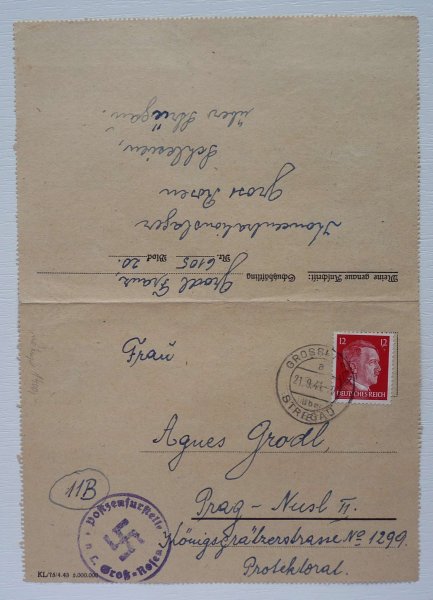 über Striegau.
Schlesien,
Gross Rosen
Koncentrationslager
Nr. 6105 Block 20.
Meine genaue Anschrift: Schutzhäftling Grodl Franz,
Frau
GROSS
a
21.9.43
über
STRIEGAU
12 12
DEUTSCHES REICH
Agnes Grodl,
Prag - Nusl II.
Königsgrätzerstrasse No 1299
Protektorat.
11B
Postzensurstelle
K. L. Groß-Rosen
KL/75/4.43 5.000.000